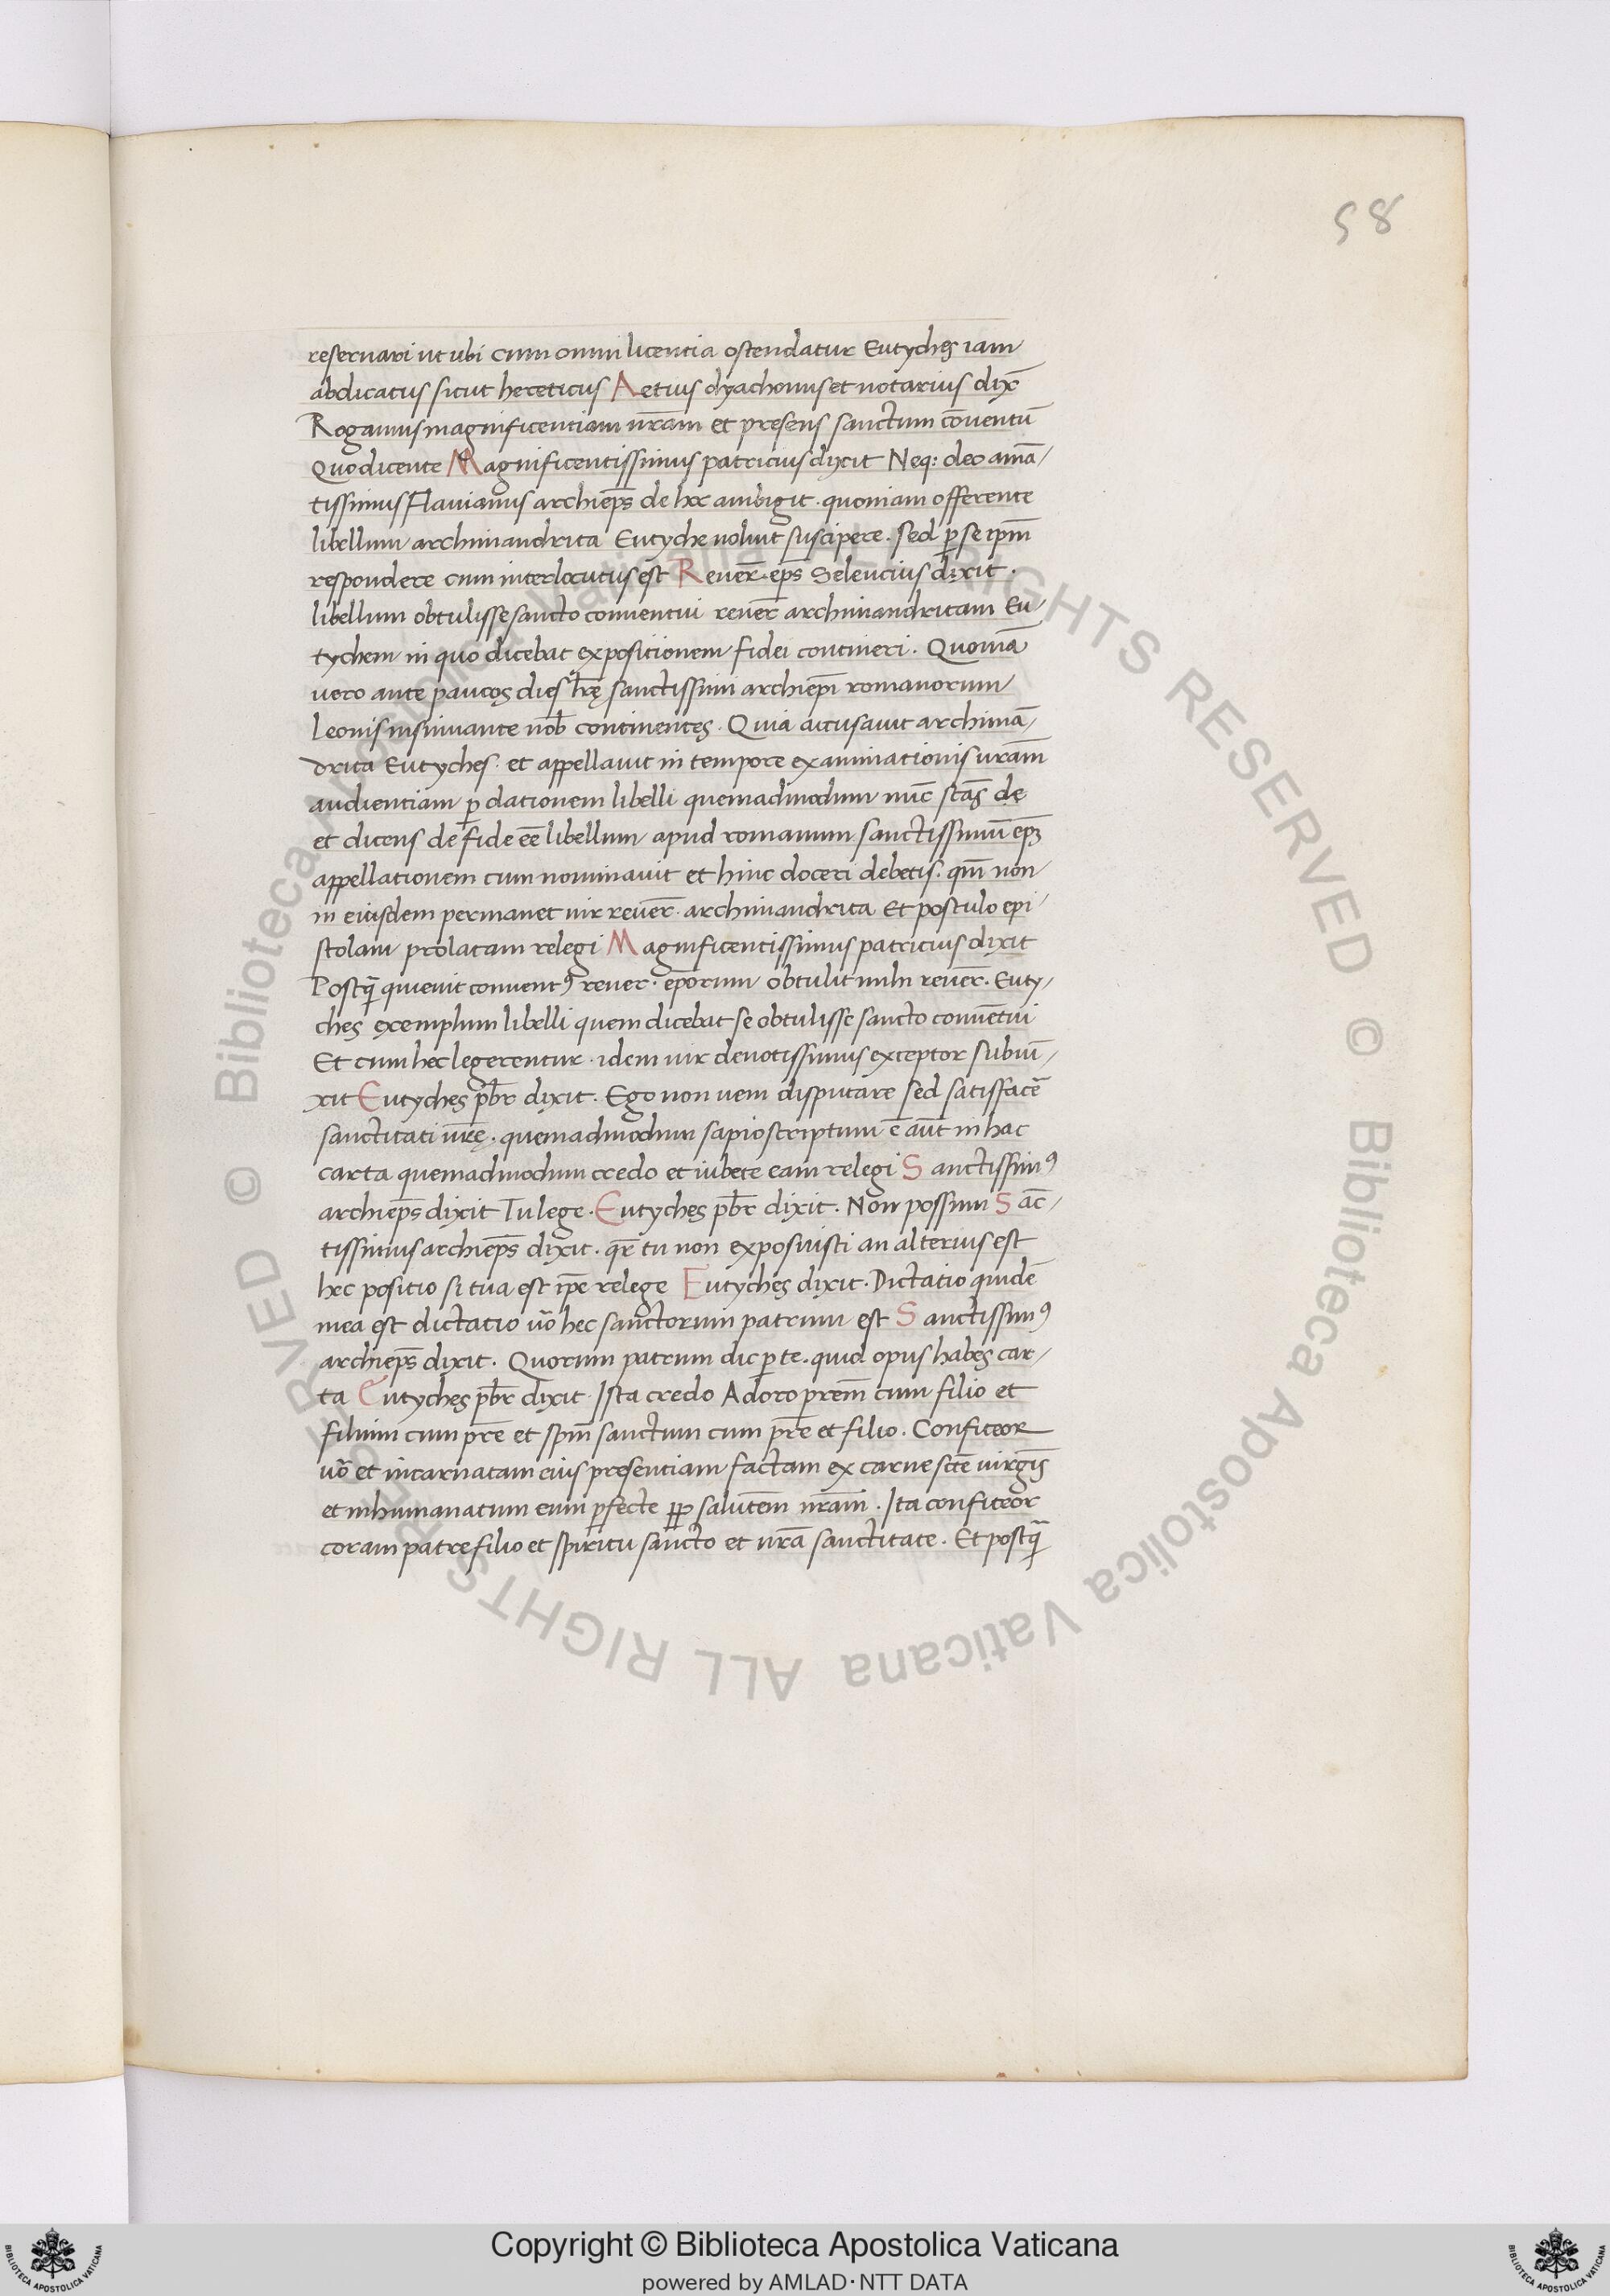 58
reseruari ut ubi cum omni licentia ostendatur Eutyches iam
abdicatus sicut hereticus Aetius dyachonus et notarius dix̄
Rogamus magnificentiam ur̄am et presens sanctum cōuentū
Quo dicente Magnificentissimus patricius dixit Neq: deo amā
tissimus Flauianus archiep̄s de hoc ambigit. quoniam offerente
libellum archimandrita Eutyche noluit suscipere. sed ꝑ se ip̄m
respondere cum interlocutus est Reuer̄. ep̄s Seleucius dixit.
libellum obtulisse sancto conuentui reuer̄ archimandritam Eu
tychem in quo dicebat expositionem fidei contineri. Quoniā
uero ante paucos dies l̄rę sanctissimi archiep̄i romanorum
Leonis insinuante nob̄ continentes. Quia accusauit archimā
drita Eutyches. et appellauit in tempore examinationis ur̄am
audientiam ꝑ dationem libelli quemadmodum nūc stās de
et dicens de fide eē libellum apud romanum sanctissimū ep̄m
appellationem cum nominauit et hinc doceri debetis. qm̄ non
in eiusdem permanet uir reuer̄. archimandrita Et postulo epi
stolam prolatam relegi Magnificentissimus patricius dixit
Postq̄ quieuit conuentꝰ reuer. ep̄orum obtulit mihi reuer̄. Euty
ches exemplum libelli quem dicebat se obtulisse sancto conuētui
Et cum hec legerentur. idem uir deuotissimus exceptor subiū
xit Eutyches pb̄r dixit. Ego non ueni disputare sed satisfacē
sanctitati ur̄ę. quemadmodum sapio scriptum ē aūt in hac
carta quemadmodum credo et iubete eam relegi Sanctissimꝰ
archiep̄s dixit Tu lege. Eutyches pb̄r dixit. Non possum Sāc
tissimus archiep̄s dixit. qr̄ tu non exposuisti an alterius est
hec positio si tua est ip̄e relege Eutyches dixit. Dictatio quidē
mea est dictatio ūo hec sanctorum patrum est Sanctissimꝰ
archiep̄s dixit. Quorum patrum dic ꝑ te. quid opus habes car
ta Eutyches pb̄r dixit. Ista credo Adoro pr̄em cum filio et
filium cum pr̄e et sp̄m sanctum cum pr̄e et filio. Confiteor
ūo et incarnatam eius presentiam factam ex carne sctē uirgīs
et inhumanatum eum ꝑfecte ꝓꝑ salutem nr̄am. Ita confiteor
coram patre filio et spiritu sancto et ur̄a sanctitate. Et postq̄
© Biblioteca Apostolica Vaticana ALL RIGHTS RESERVED © Biblioteca Apostolica Vaticana ALL RIGHTS RESERVED
Copyright © Biblioteca Apostolica Vaticana
powered by AMLAD·NTT DATA
BIBLIOTECA APOSTOLICA VATICANA
BIBLIOTECA APOSTOLICA VATICANA